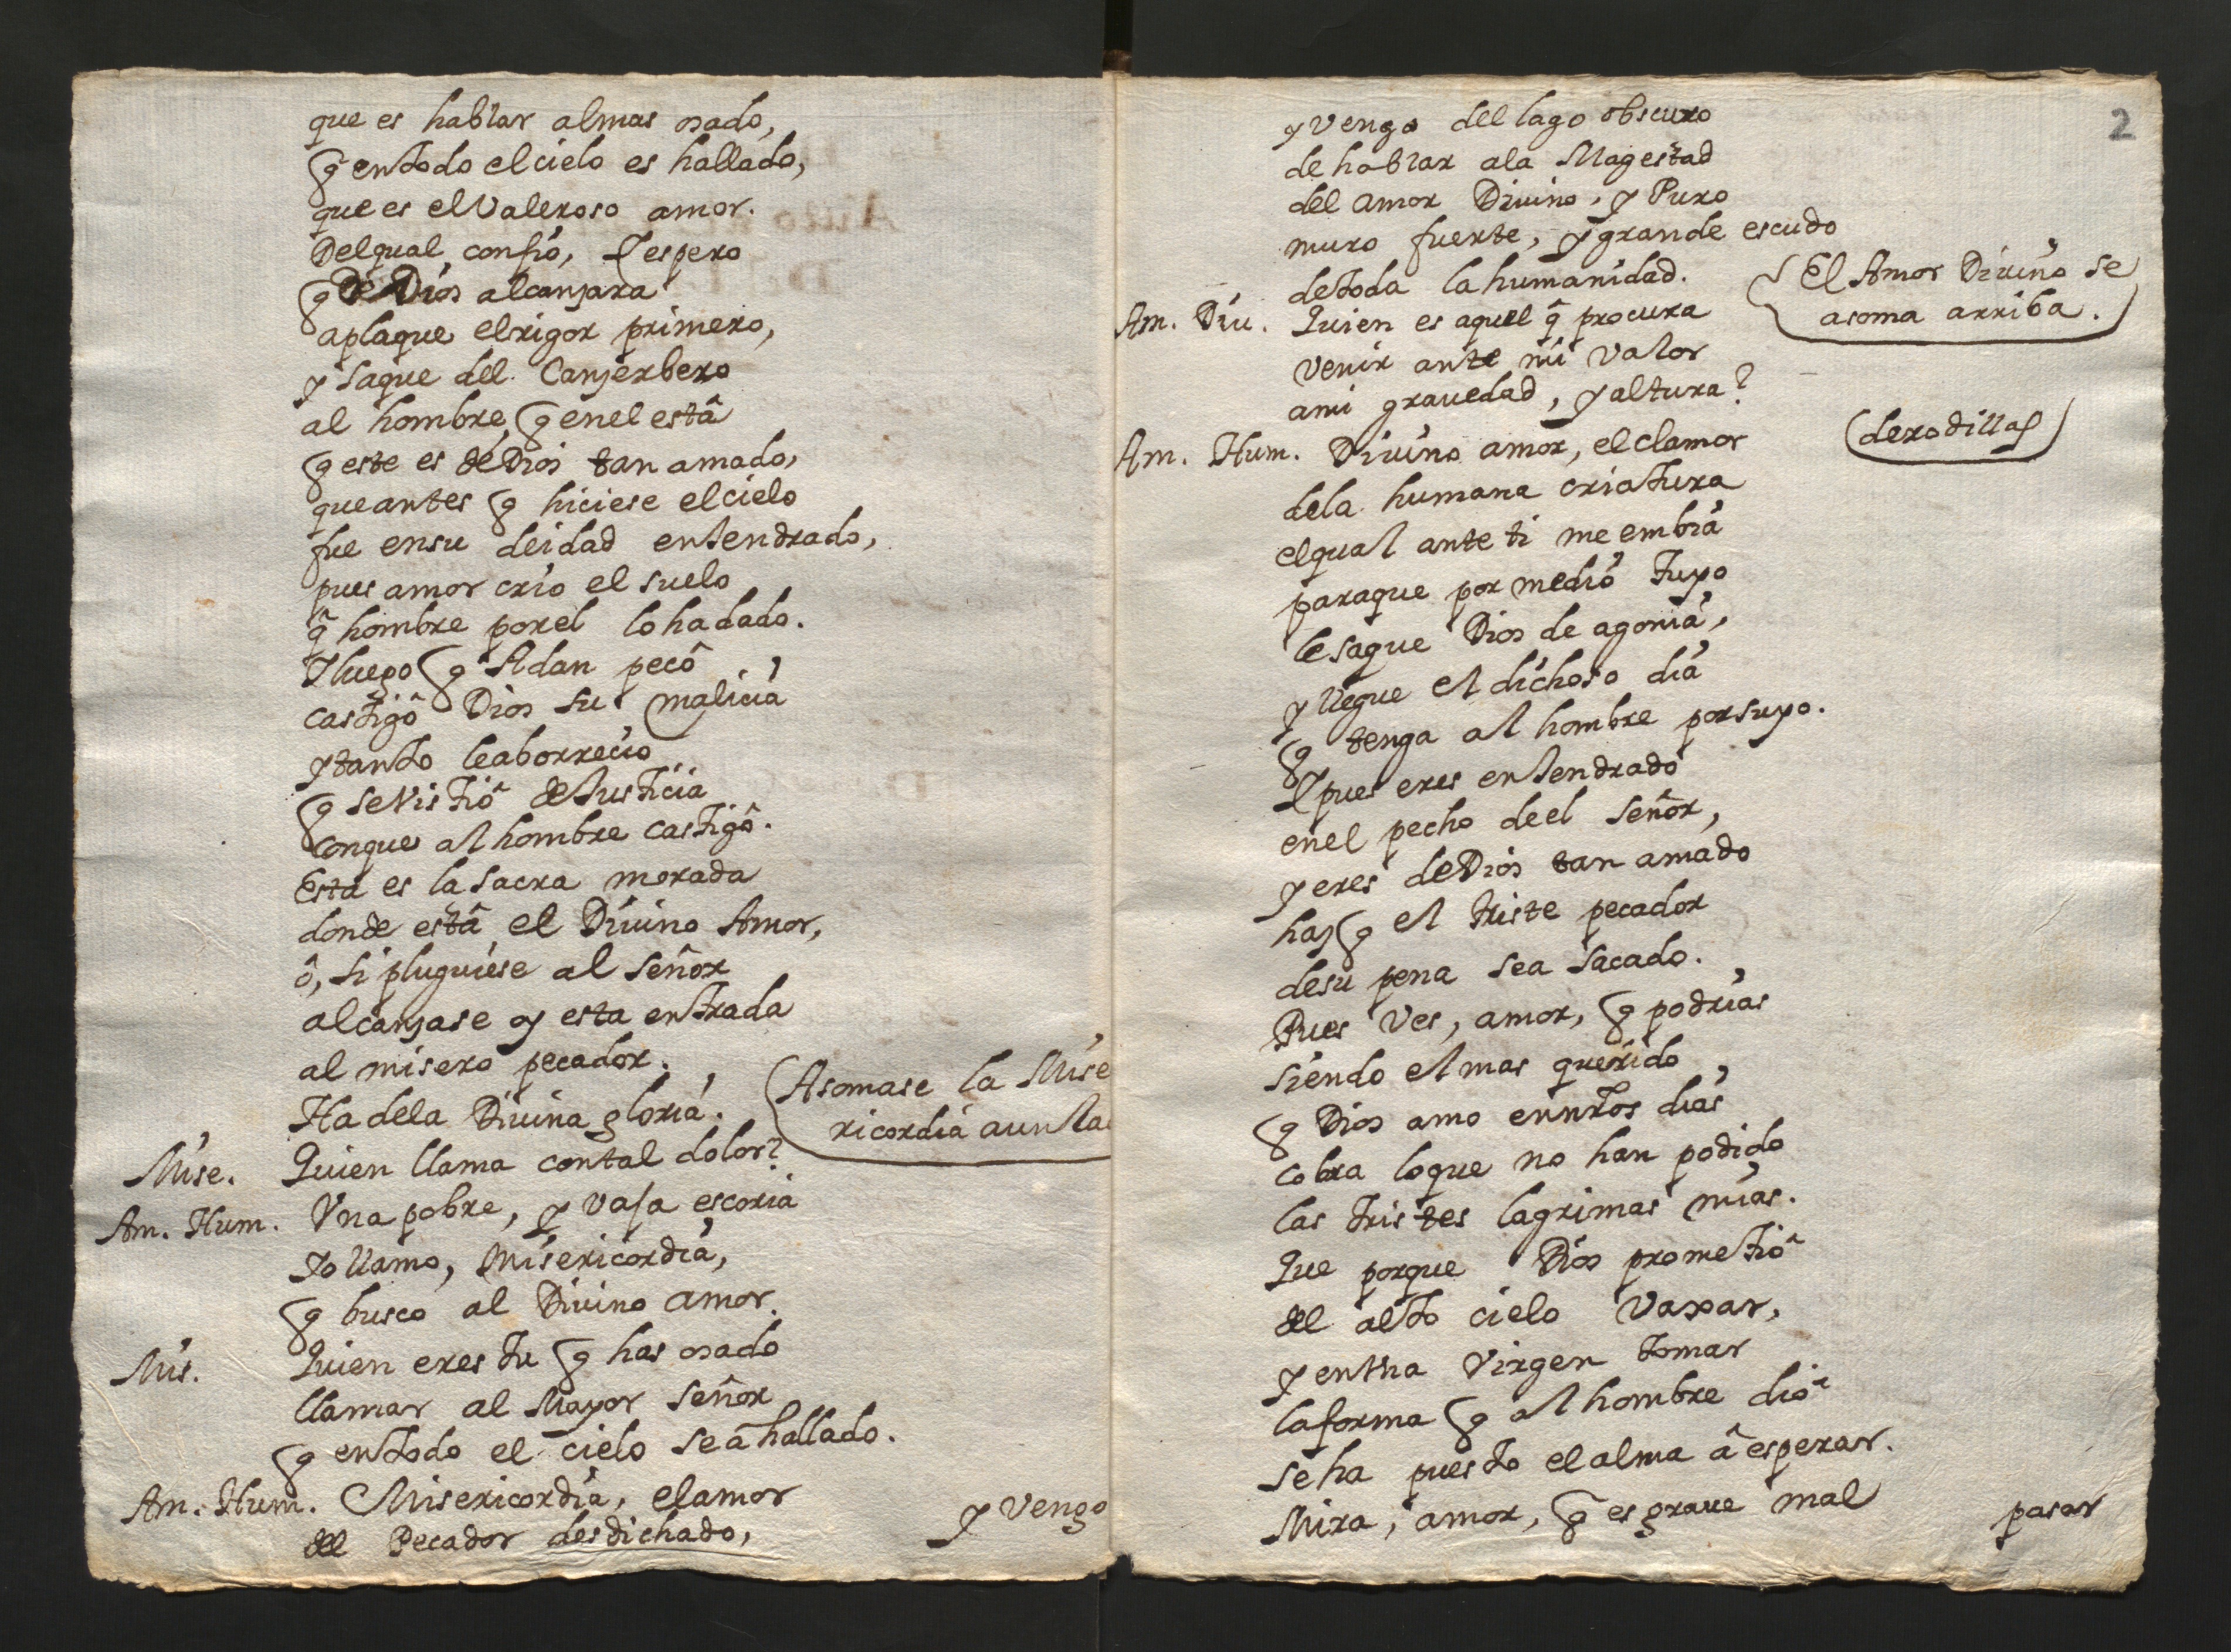 que es hablar almas osado,
q̃ entodo elcielo es hallado,
que es elValeroso amor.
Delqual confio, Y espero
q̃ De Dios alcanzara
aplaque elrigor primero,
y saque del Canzerbero
al hombre, q̃ enel està
q̃ este es deDios tan amado,
queantes q̃ hiciese elcielo
fue ensu deidad enJendrado,
pues amor crio el suelo
q̃ hombre porel lohadado.
Yluego q̃ Adan pecô
castigô Dios su malicia
ytanto leaborrecio
q̃ seVistiô deJusticia
conque al hombre castigô.
Esta es la sacra morada
donde està el Divino Amor,
ô, si pluguiese al Señor
alcanzase oy esta entrada
al misero pecador.
Ha dela Divina gloria.
(Asomase la Mise
ricordia aunla
Mise. Quien llama contal dolor?
Am. Hum. Vna pobre, y vaja escoria
Yo llamo, Misericordia,
q̃ busco al Divino amor.
Mis. Quien eres tu q̃ has osado
llamar al Mayor Señor
q̃ entodo el cielo seâ hallado.
Am. Hum. Misericordia, elamor
del Pecador desdichado,
y Vengo
2
y Vengo del lago obscuro
de hablar ala Magestad
del amor Divino, y Puro
muro fuerte, y grande escudo
detoda la humanidad.
(El Amor Divino se
asoma arriba.)
Am. Div. Quien es aquel q̃ procura
venir ante mi valor
ami gravedad, y altura?
Am. Hum. Divino amor, el clamor
(derodillas)
dela humana criatura
elqual ante ti me embia
paraque por medio tuyo
lesaque Dios de agonia,
y llegue el dichoso dia
q̃ tenga al hombre porsuyo.
Y pues eres enJendrado
enel pecho deel Señor,
y eres deDios tan amado
haz q̃ el triste pecador
desu pena sea sacado.
Pues Ves, amor, q̃ podrias
siendo el mas querido
q̃ Dios amo ennr̃os dias
cobra loque no han podido
las tristes lagrimas mias.
Que porque Dios prometiô
del alto cielo vaxar,
y entña Virgen tomar
laforma q̃ al hombre diô
seha puesto elalma â esperar.
Mira, amor, q̃ es grave mal
pasar